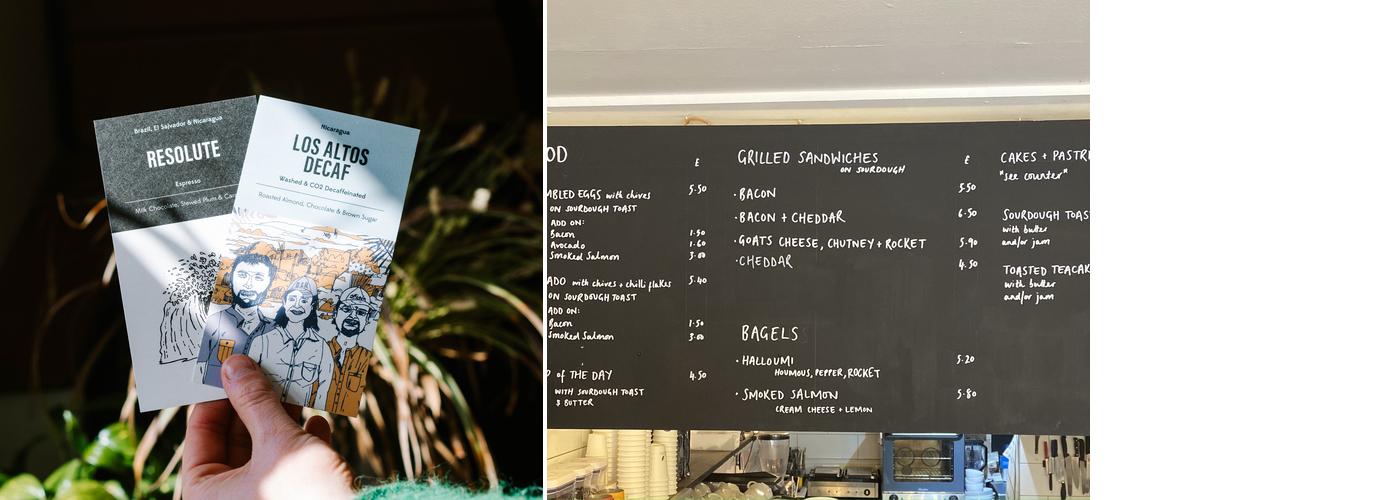 Brazil, El Salvador & Nicaragua
RESOLUTE
Espresso
Milk Chocolate, Stewed Plum &
Nicaragua
LOS ALTOS
DECAF
Washed & CO2 Decaffeinated
Roasted Almond, Chocolate & Brown Sugar
OD
£
MBLED EGGS with chives 5.50
ON SOURDOUGH TOAST
ADD ON:
Bacon 1.50
Avocado 1.60
Smoked Salmon 3.00
ADO with chives + chilli flakes 5.40
ON SOURDOUGH TOAST
ADD ON:
Bacon 1.50
Smoked Salmon 3.00
P of THE DAY 4.50
WITH SOURDOUGH TOAST
& BUTTER
GRILLED SANDWICHES £
ON SOURDOUGH
· BACON 5.50
· BACON + CHEDDAR 6.50
· GOATS CHEESE, CHUTNEY + ROCKET 5.90
· CHEDDAR 4.50
BAGELS
· HALLOUMI 5.20
HOUMOUS, PEPPER, ROCKET
· SMOKED SALMON 5.80
CREAM CHEESE + LEMON
CAKES + PASTR
*see counter*
SOURDOUGH TOAS
with butter
and/or jam
TOASTED TEACAK
with butter
and/or jam